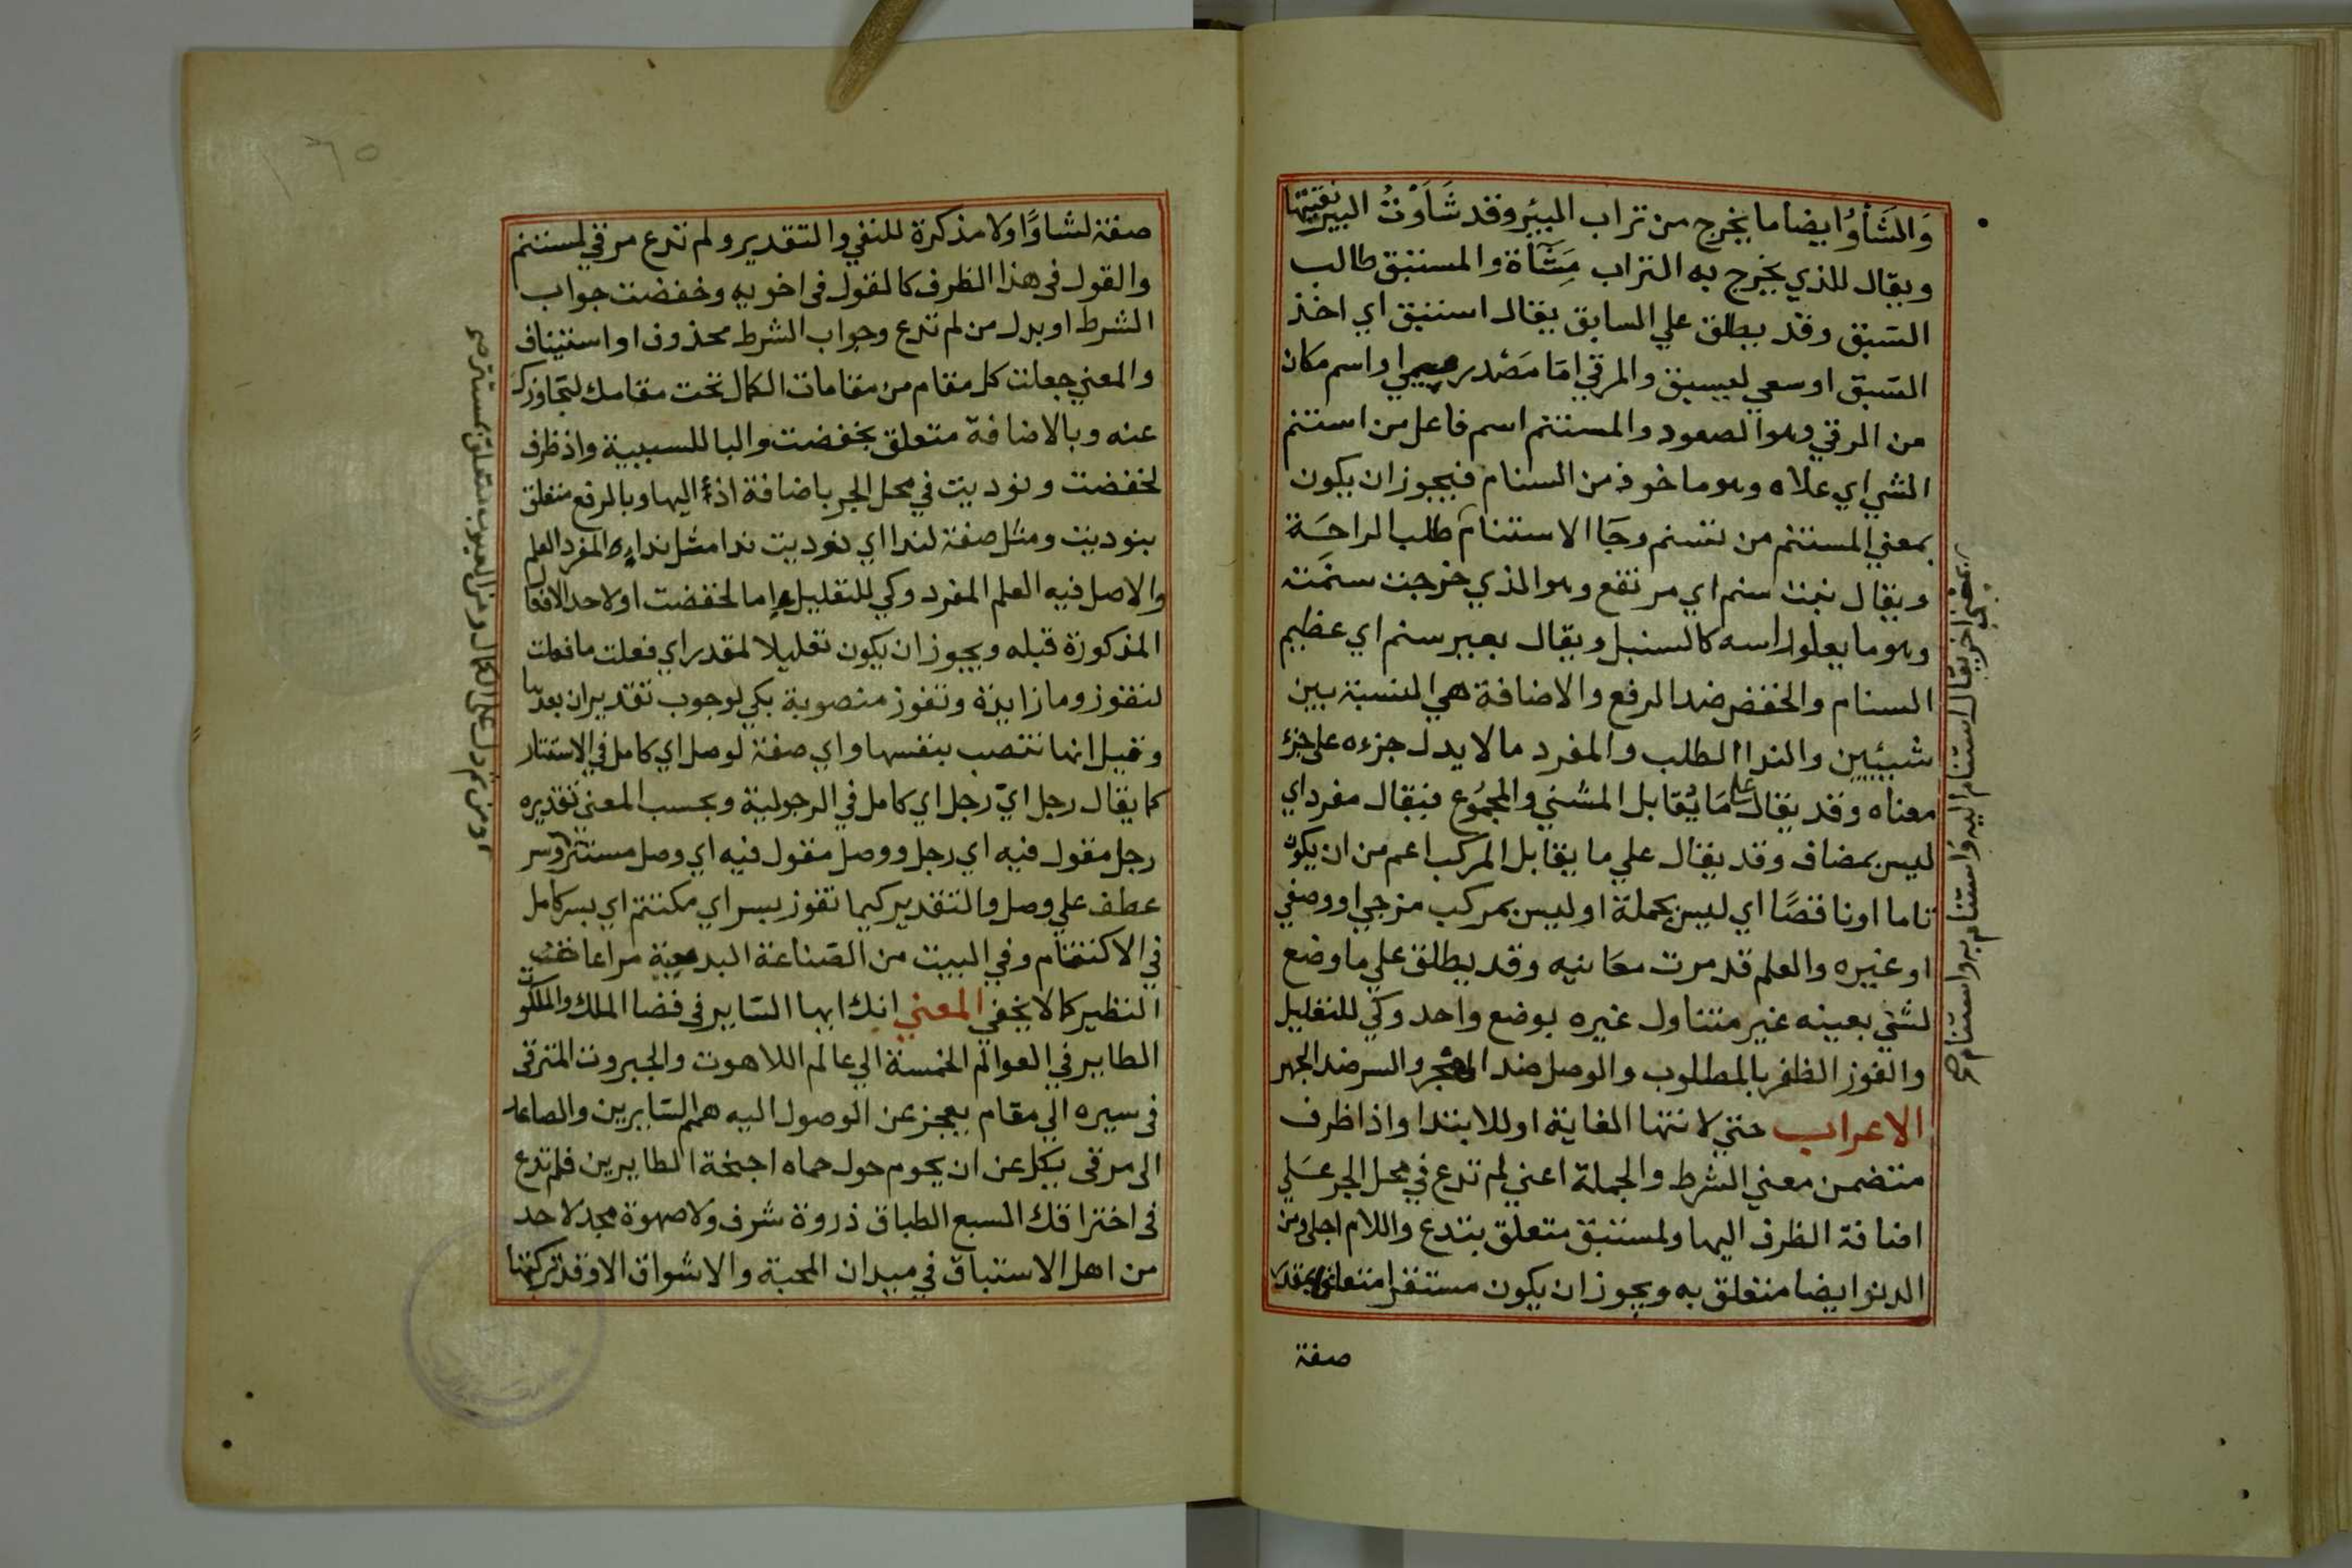 وَالشَأوُ ايضا ما يخرج من تراب البيئر وقد شَأَوْتُ البير نقيتها
ويقال للذي يخرج به التراب مِشآة والمستبق طالب
السّبق وقد يطلق علي السابق يقال استبق اي اخذ
السّبق او سعي ليسبق والمرقي امّا مَصْدر ميمي او اسم مكان
من الرقي وهو الصعود والمستنم اسم فاعل من استنم
الشي اي علاه وهو ماخوذ من السنام فيجوز ان يكون
بمعني المستنم من تسنم وجَا الاستنام طلب الراحَة
ويقال نبت سنم اي مرتفع وهو الذي خرجت سنمَته
وهو ما يعلو راسه كالسنبل ويقال بعير سنم اي عظيم
السنام والخفض ضد الرفع والاضافة هي النسبة بين
شيئين والندا الطلب والمفرد ما لا يدل جزءه علي جزء
معناه وقد يقال علي مَا يُقابل المثني والمجمُوع فيقال مفرد اي
ليس بمضاف وقد يقال علي ما يقابل المركب اعم من ان يكون
تاما او ناقصًا اي ليس بجملة او ليس بمركب مزجي او وصفي
او غيره والعلم قد مرت معَانيه وقد يطلق علي ما وضع
لشي بعينه غير متناول غيره بوضع واحد وكي للتعليل
والفوز الظفر بالمطلوب والوصل ضد الهجر والسر ضد الجهر
الاعراب حتي لانتها الغاية او للابتدا واذا ظرف
متضمن معني الشرط والجملة اعني لم تدع في محل الجر عَلي
اضافة الظرف اليها ولمستبق متعلق بتدع واللام اجلي ومن
الدنو ايضا متعلق به ويجوز ان يكون مستقرا متعلقا بمقدر
صفة
اخر يقال استنام اليه واستنام به واستنام
صفة لشاوًا ولا مذكرة للنفي والتقدير ولم تدع مرقي لمستنم
والقول في هذا الظرف كالقول في اخويه وخفضت جواب
الشرط او بدل من لم تدع وجواب الشرط محذوف او استيناف
والمعني جعلت كل مقام من مقامات الكمال تحت مقامك لتجاوزك
عنه وبالاضافة متعلق بخفضت والبا للسببية واذ ظرف
لخفضت ونوديت في محل الجر باضافة اذ اليها وبالرفع متعلق
بنوديت ومثل صفة لندا اي نوديت ندا مثل نداء المفرد العلم
والاصل فيه العلم المفرد وكي للتعليل اما لخفضت او لاحد الافعال
المذكورة قبله ويجوز ان يكون تعليلا لمقدر اي فعلت ما فعلت
لتفوز وما زايدة وتفوز منصوبة بكي لوجوب تقدير ان بعدها
وقيل انها تنصب بنفسها واي صفة لوصل اي كامل في الاستتار
كما يقال رجل ايّ رجل اي كامل في الرجولية وبحسب المعني تقديره
رجل مقول فيه اي رجل ووصل مقول فيه اي وصل مستتر وسر
عطف علي وصل والتقدير كيما تفوز بسر اي مكتتم اي بسر كامل
في الاكتتام وفي البيت من الصّناعة البديعية مراعاة
النظير كما لا يخفي المعني انك ايها السّاير في فضا الملك والملكوت
الطاير في العوالم الخمسة الي عالم اللاهوت والجبروت المترقي
في سيره الي مقام يعجز عن الوصول اليه همم السّايرين والصاعد
الي مرقي يكل عن ان يحوم حول حماه اجنحة الطايرين فلم تدع
في اختراقك السبع الطباق ذروة شرف ولا صهوة مجد لاحد
من اهل الاستباق في ميدان المحبة والاشواق الا وقد تركتها
ومن عن العيون متعلق بمستتر